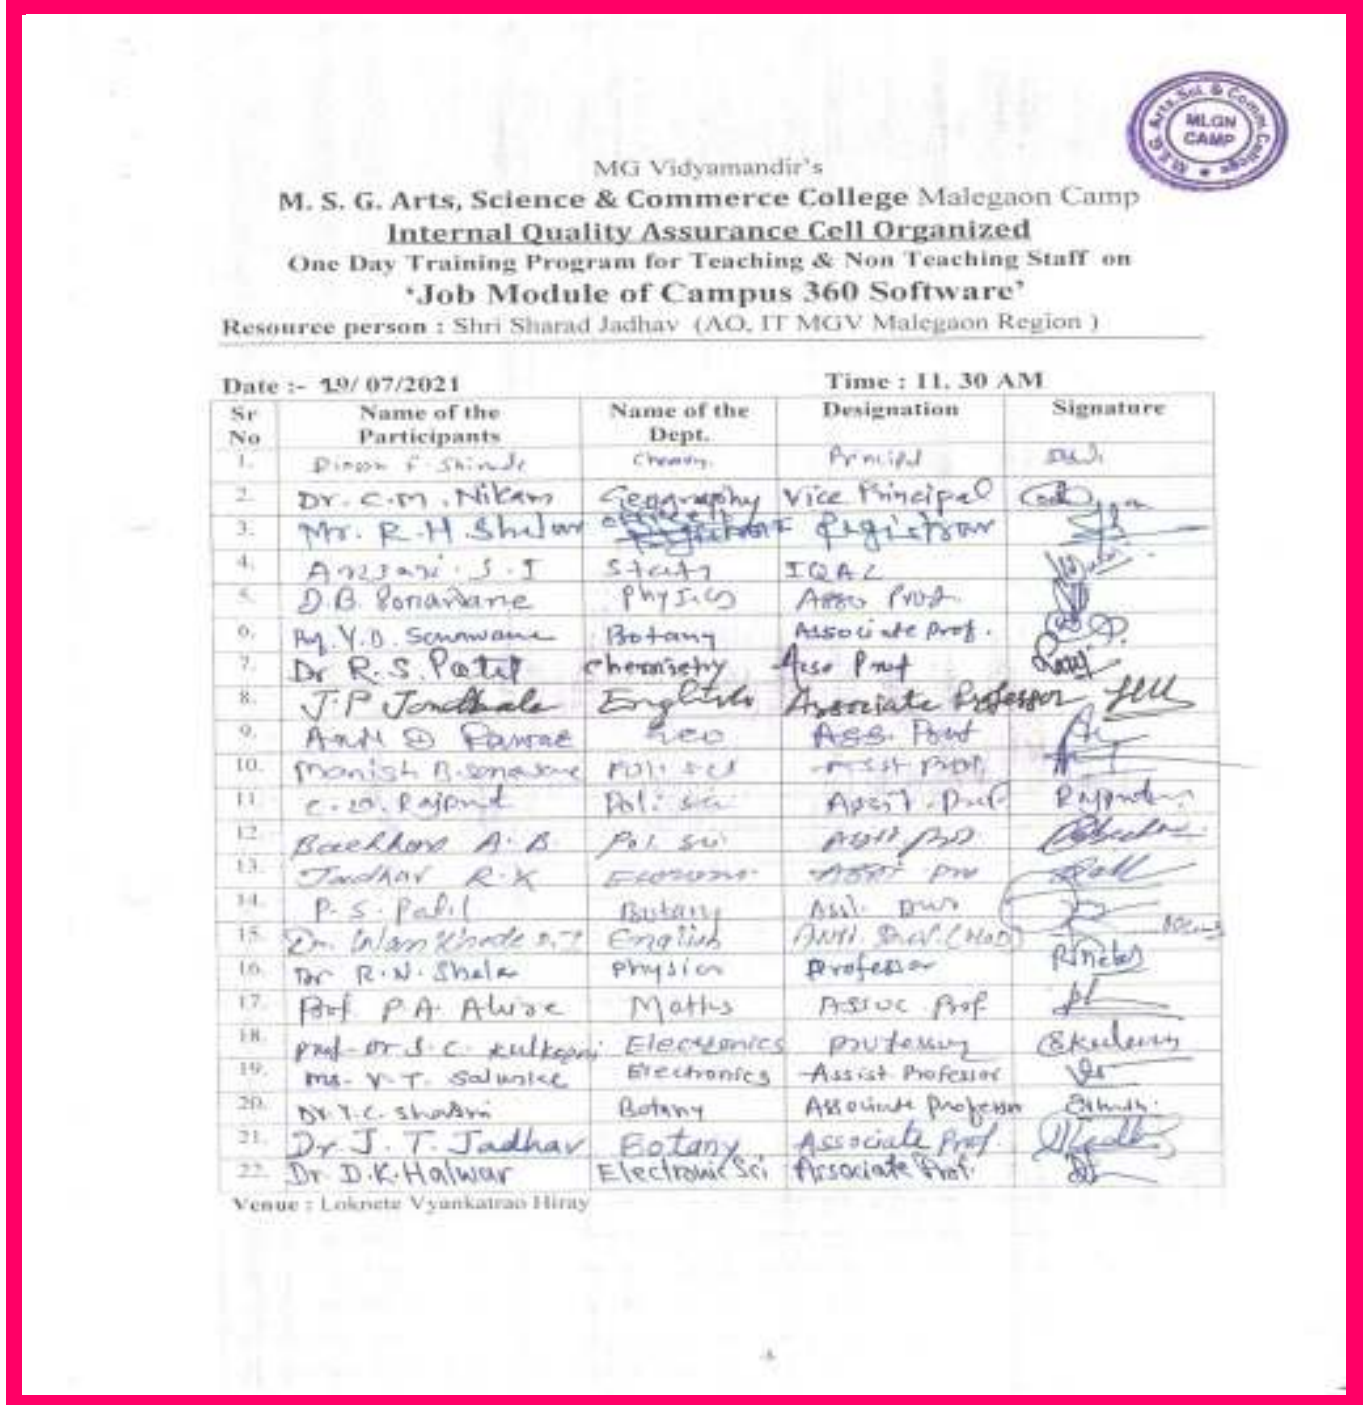 M.S.G. Arts, Sci. & Comm. College
MLGN
CAMP
MG Vidyamandir's
M. S. G. Arts, Science & Commerce College Malegaon Camp
Internal Quality Assurance Cell Organized
One Day Training Program for Teaching & Non Teaching Staff on
'Job Module of Campus 360 Software'
Resource person : Shri Sharad Jadhav (AO, IT MGV Malegaon Region )
Date :- 19/ 07/2021 Time : 11. 30 AM
Sr No Name of the Participants Name of the Dept. Designation Signature
1. Shinde Principal
2. Dr. C.M. Nikam Geography Vice Principal
3. Mr. R.H. Shelar office Registrar
4. Ansari. S. I IQAC
5. D.B. Sonawane Physics Asso Prof.
6. Y.D. Sonawane Botany Associate Prof.
7. Dr R.S. Patil chemistry Asso Prof
8. J.P Jondhale English Associate Professor
9. D Pawar Geo Ass. Prof
10. Manish B. sonawane Poli sci Asst Prof.
11 Rajput Poli sci Assit. Prof
12 A. B. Pol. Sci Asstt Prof
13. Jadhav R.K Economi Asst Prof
14. P. S. Patil Botany Asst. Prof
15. Dr. English (HoD)
16. Dr R.N. Shela Physics Professor
17. Prof P.A. Ahire Maths Assoc. Prof
18. Prof-Dr S. C. Kulkarni Electronics professor
19. Ms. V. T. Salunke Electronics Assist Professor
20. Dr Y.C. Shastri Botany Associate Professor
21. Dr. J. T. Jadhav Botany Associate Prof.
22. Dr. D.K. Halwar Electronic Sci Associate Prof.
Venue : Loknete Vyankatrao Hiray